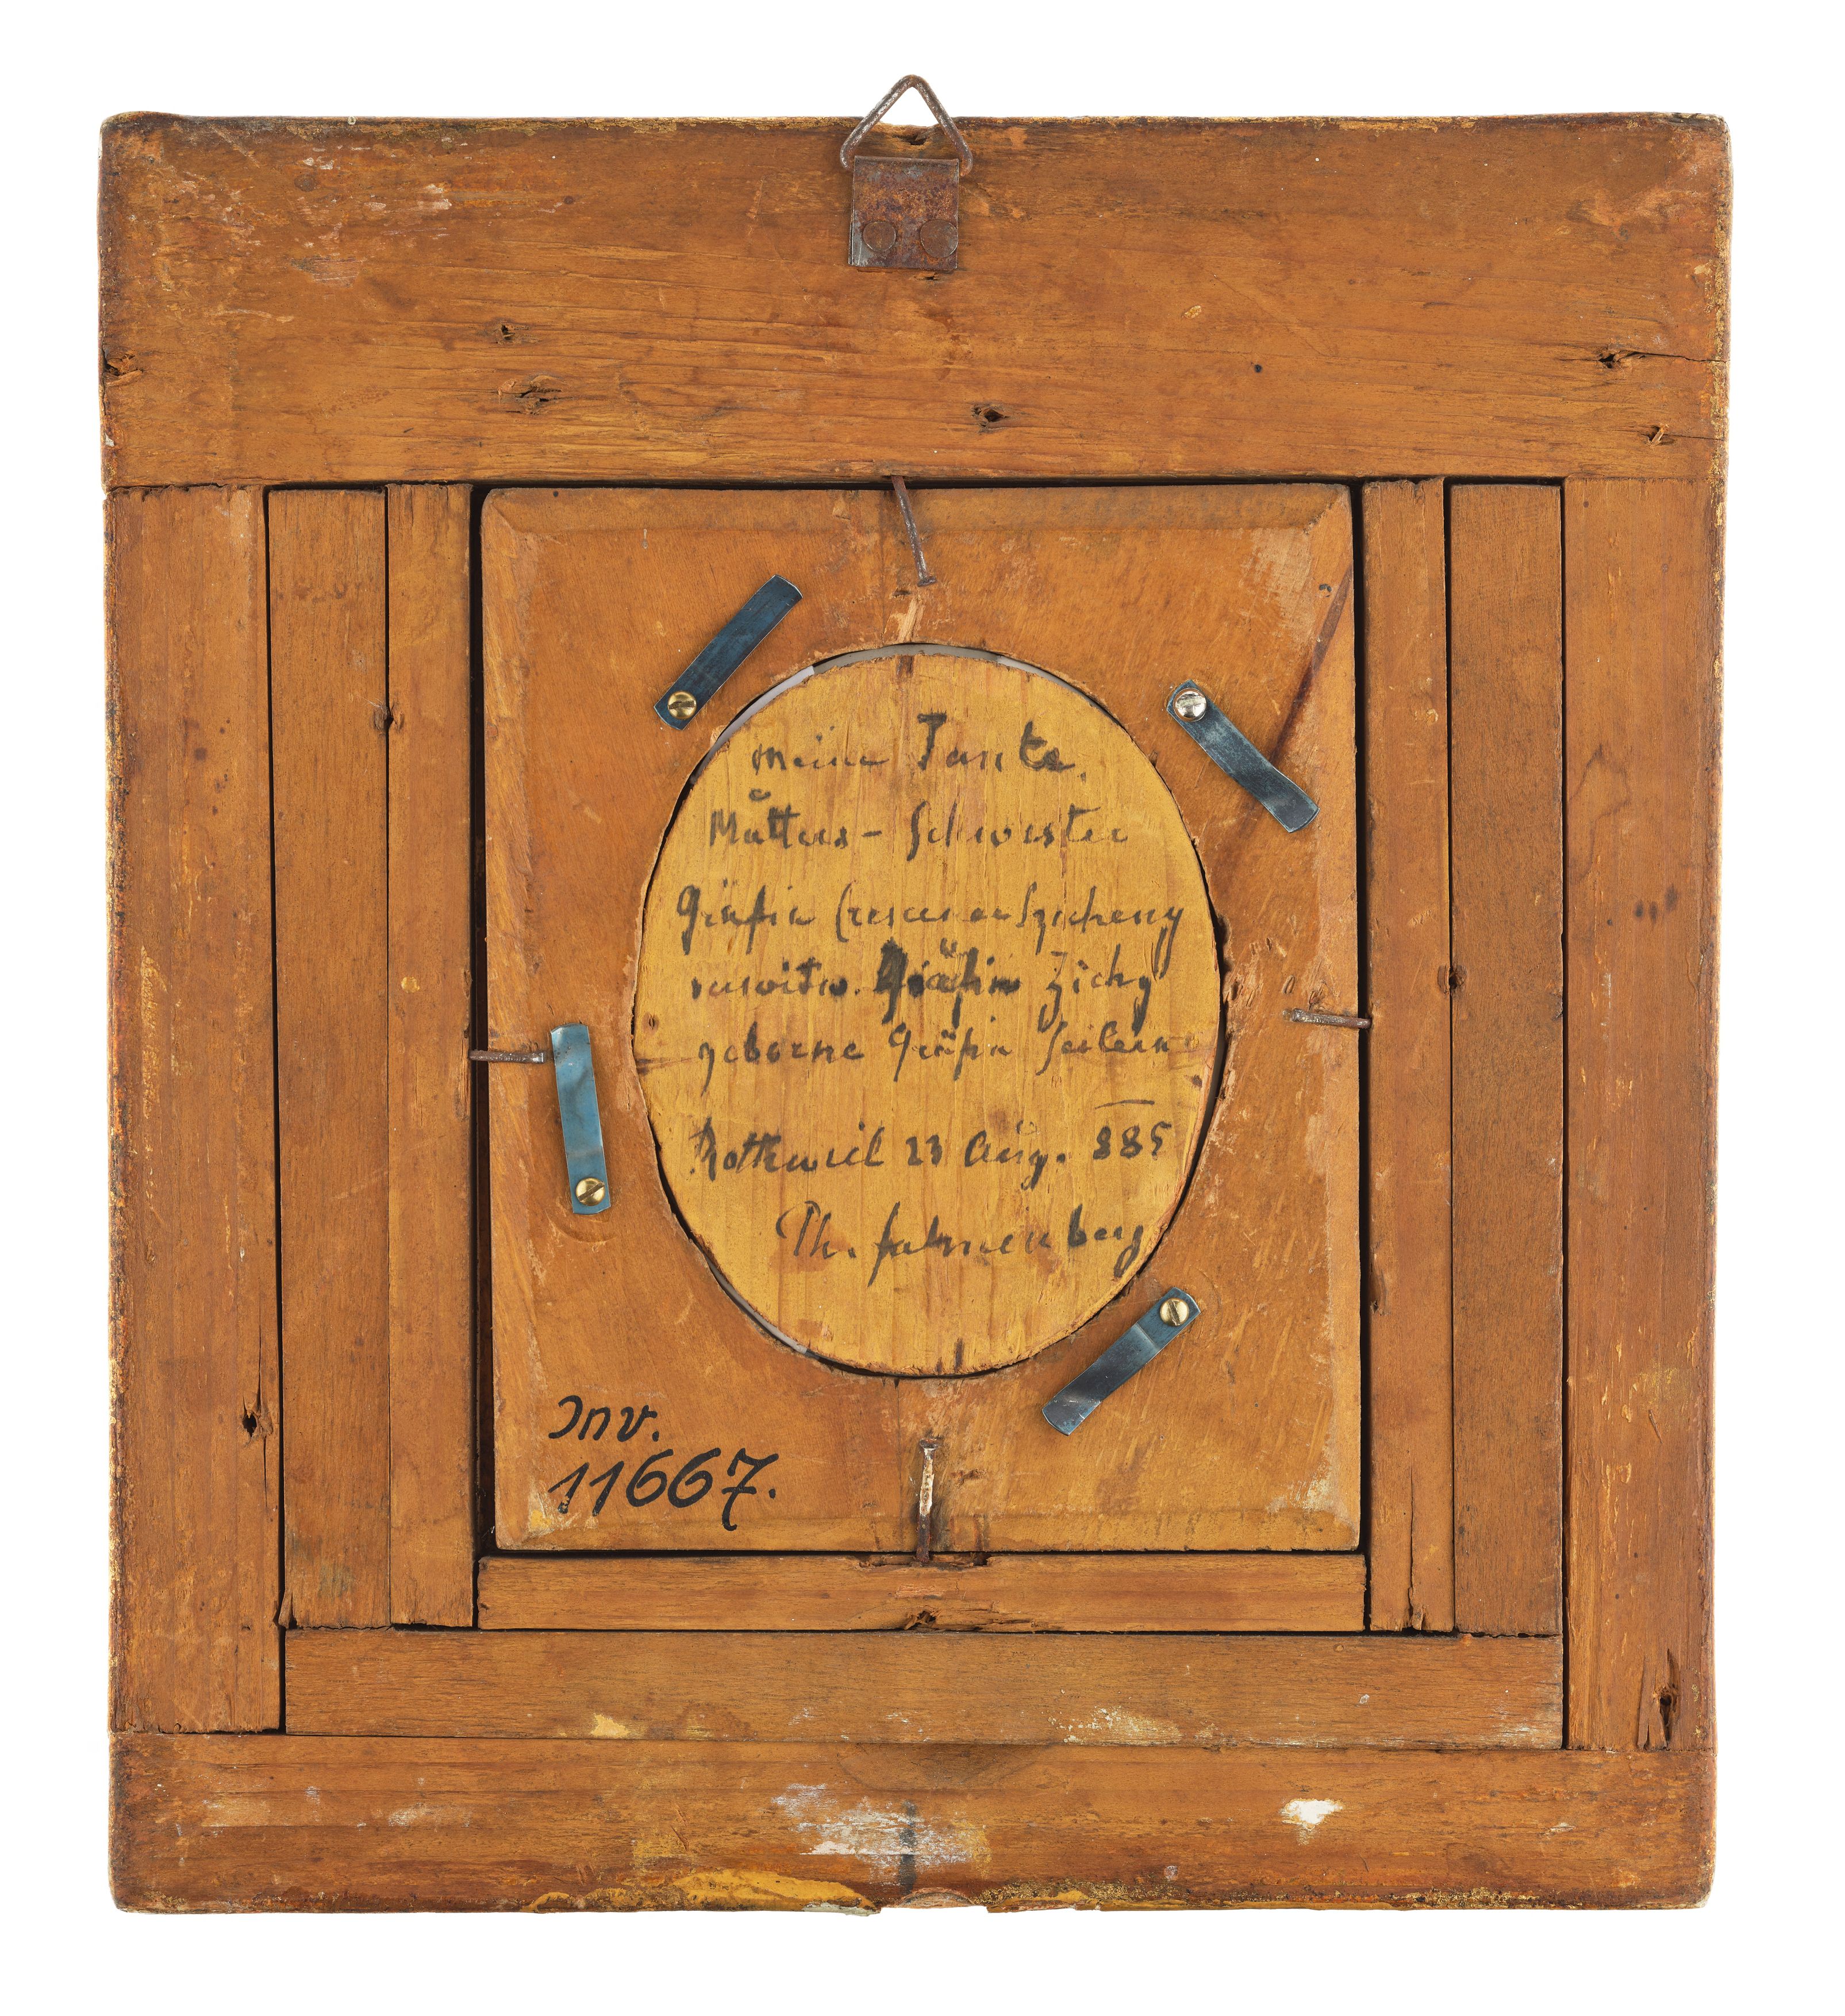 meine Tante,
Mutters - Schwester
Gräfin Crescence Szicheny
verwitw. Gräfin Zichy
geborne Gräfin Seilern
Rothweil 23 Aug. 885
Th. falmenberg
Inv.
11667.